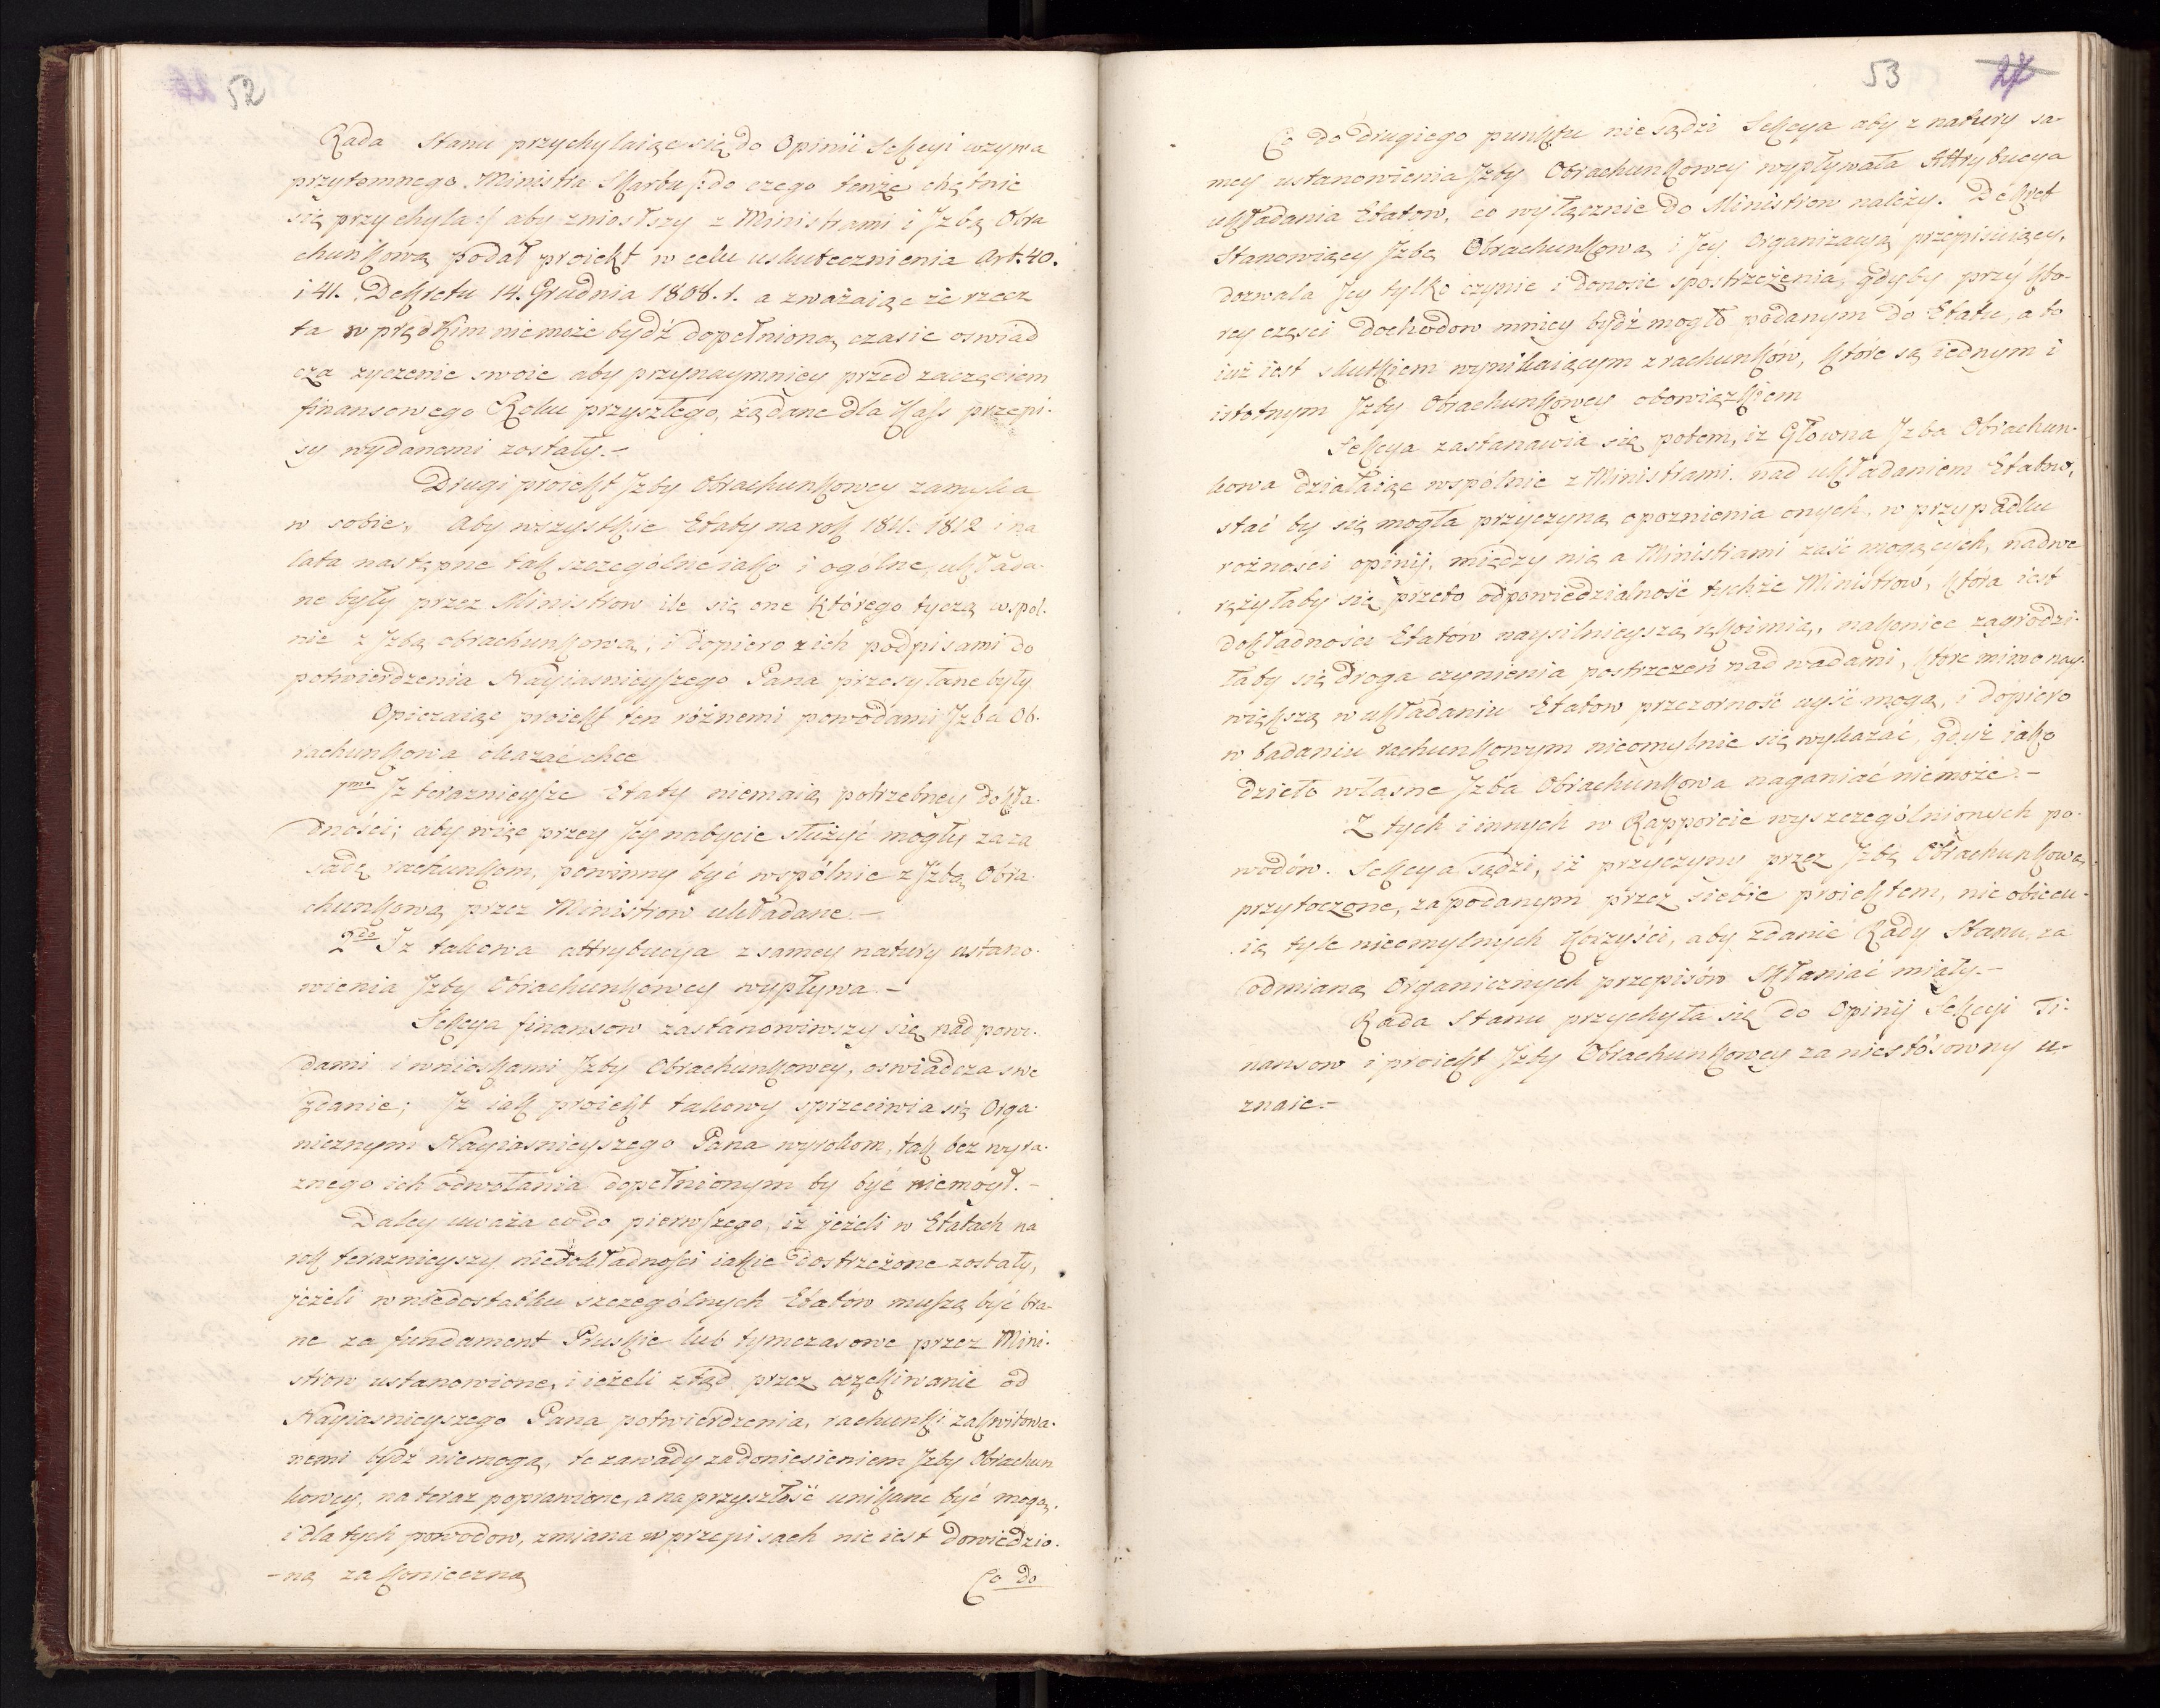 52
Rada Stanu przychylaiąc się do Opinii Sekcyi wzywa
przytomnego Ministra Skarbu /: do czego tenże chętnie
się przychyla :/ aby zniosłszy z Ministrami i Jzbą Obra
chunkową podał proiekt w celu uskutecznienia Art. 40.
i 41. Dekretu 14. Grudnia 1808. r. a zważaiąc że rzecz
ta w prędkim niemoże bydź dopełnioną czasie oswiad
cza zyczenie swoie aby przynaymniey przed zaczęciem
finansowego Roku przyszłego, żądane dla Kass przepi-
sy wydanemi zostały.-
Drugi proiekt Jzby Obrachunkowey zamyka
w sobie, Aby wszystkie Etaty na rok 1811. 1812 i na
lata następne tak szczególne iako i ogólne, układa-
ne były przez Ministrow ile się one którego tyczą wspol-
nie z Jzbą obrachunkową, i dopiero z ich podpisami do
potwierdzenia Nayiasnieyszego Pana przesyłane były
Opieraiąc proiekt ten różnemi powodami Jzba Ob-
rachunkowa okazać chce
1mo Jz teraznieysze Etaty niemaią potrzebney dokła-
dności; aby więc przey Jey nabycie służyć mogły za za
sadę rachunkom, powinny być wspólnie z Jzbą Obra-
chunkową przez Ministrow układane.-
2do Jz takowa attrybucya z samey natury ustano-
wienia Jzby Obrachunkowey wypływa.-
Sekcya finansow zastanowiwszy się nad powo-
dami i wnioskami Jzby Obrachunkowey, oswiadcza swe
zdanie; Jz iak proiekt takowy sprzeciwia się Orga-
nicznym Nayiasnieyszego Pana wyrokom, tak bez wyra-
znego ich odwołania dopełnionym by być niemogł.-
Daley uważa co do pierwszego, iż jeżeli w Etatach na
rok teraznieyszy niedokładności iakie dostrzeżone zostały,
jeżeli w niedostatku szczególnych Etatów muszą być bra-
ne za fundament Pruskie lub tymczasowe przez Mini-
strow ustanowione, i ieżeli ztąd przez oczekiwanie od
Nayiasnieyszego Pana potwierdzenia, rachunki zakwitowa-
nemi bydź niemogą, te zawady za doniesieniem Jzby Obrachun
kowey, na teraz poprawione, a na przyszłość unikane być mogą,
i dla tych powodow, zmiana w przepisach nie iest dowiedzio-
-ną za konieczną
Co do
53 27
Co do drugiego punktu nie sądzi Sekcya aby z natury sa-
mey ustanowienia Jzby Obrachunkowey wypływała Attrybucya
układania Etatow, co wyłącznie do Ministrow należy. Dekret
Stanowiący Jzbę Obrachunkową i Jey Organizacyą przepisuiący,
dozwala Jey tylko czynic i donosic spostrzeżenia, gdyby przy któ-
rey części dochodow mniey bydź mogło podanym do Etatu, a to
iuż iest skutkiem wynikaiącym z rachunków, które są iednym i
istotnym Jzby Obrachunkowey obowiązkiem
Sekcya zastanawia się potem, iz Główna Jzba Obrachun-
kowa działaiąc wspólnie z Ministrami nad układaniem Etatow,
stać by się mogła przyczyną opoznienia onych, w przypadku
rożności opinij, między nią a Ministrami zaść mogących, nadwe
rężyłaby się przeto odpowiedzialność tychże Ministrow, która iest
dokładności Etatów naysilnieyszą rękoimią, nakoniec zagrodzi-
łaby się droga czynienia postrzeżeń nad wadami, które mimo nay-
większą w układaniu Etatow przezorność uyść mogą, i dopiero
w badaniu rachunkowym nieomylnie się wykazać, gdyż iako
dzieło własne Jzba Obrachunkowa naganiać niemoże.-
Z tych i innych w Rapporcie wyszczególnionych po-
wodów. Sekcya sądzi, iż przyczyny przez Jzbę Obrachunkową
przytoczone, za podanym przez siebie proiektem, nie obiecu-
ią tyle nieomylnych korzyści, aby zdanie Rady Stanu, za
odmianą Organicznych przepisów skłaniać miały.-
Rada Stanu przychyla się do Opinij Sekcyi Fi-
nansow i proiekt Jzby Obrachunkowey za niestósowny u-
znaie.-